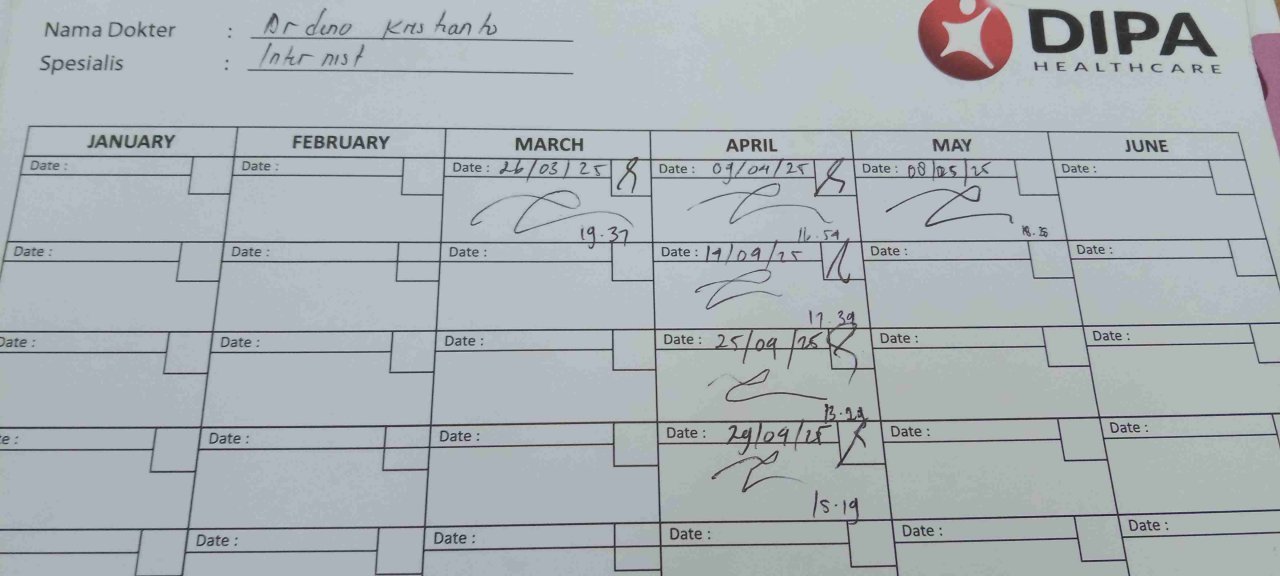 Nama Dokter : Dr deno Kristianto
Spesialis : Internist
DIPA
HEALTHCARE
JANUARY FEBRUARY MARCH APRIL MAY JUNE
Date : Date : Date : 26/03/25 Date : 09/04/25 Date : 08/05/25 Date :
19.37 16.59
Date : Date : Date : Date : 19/04/25 Date : Date :
17.39
Date : Date : Date : Date : 25/04/25 Date : Date :
Date : Date : Date : 29/04/25 Date : Date :
15.19
Date : Date : Date : Date : Date :